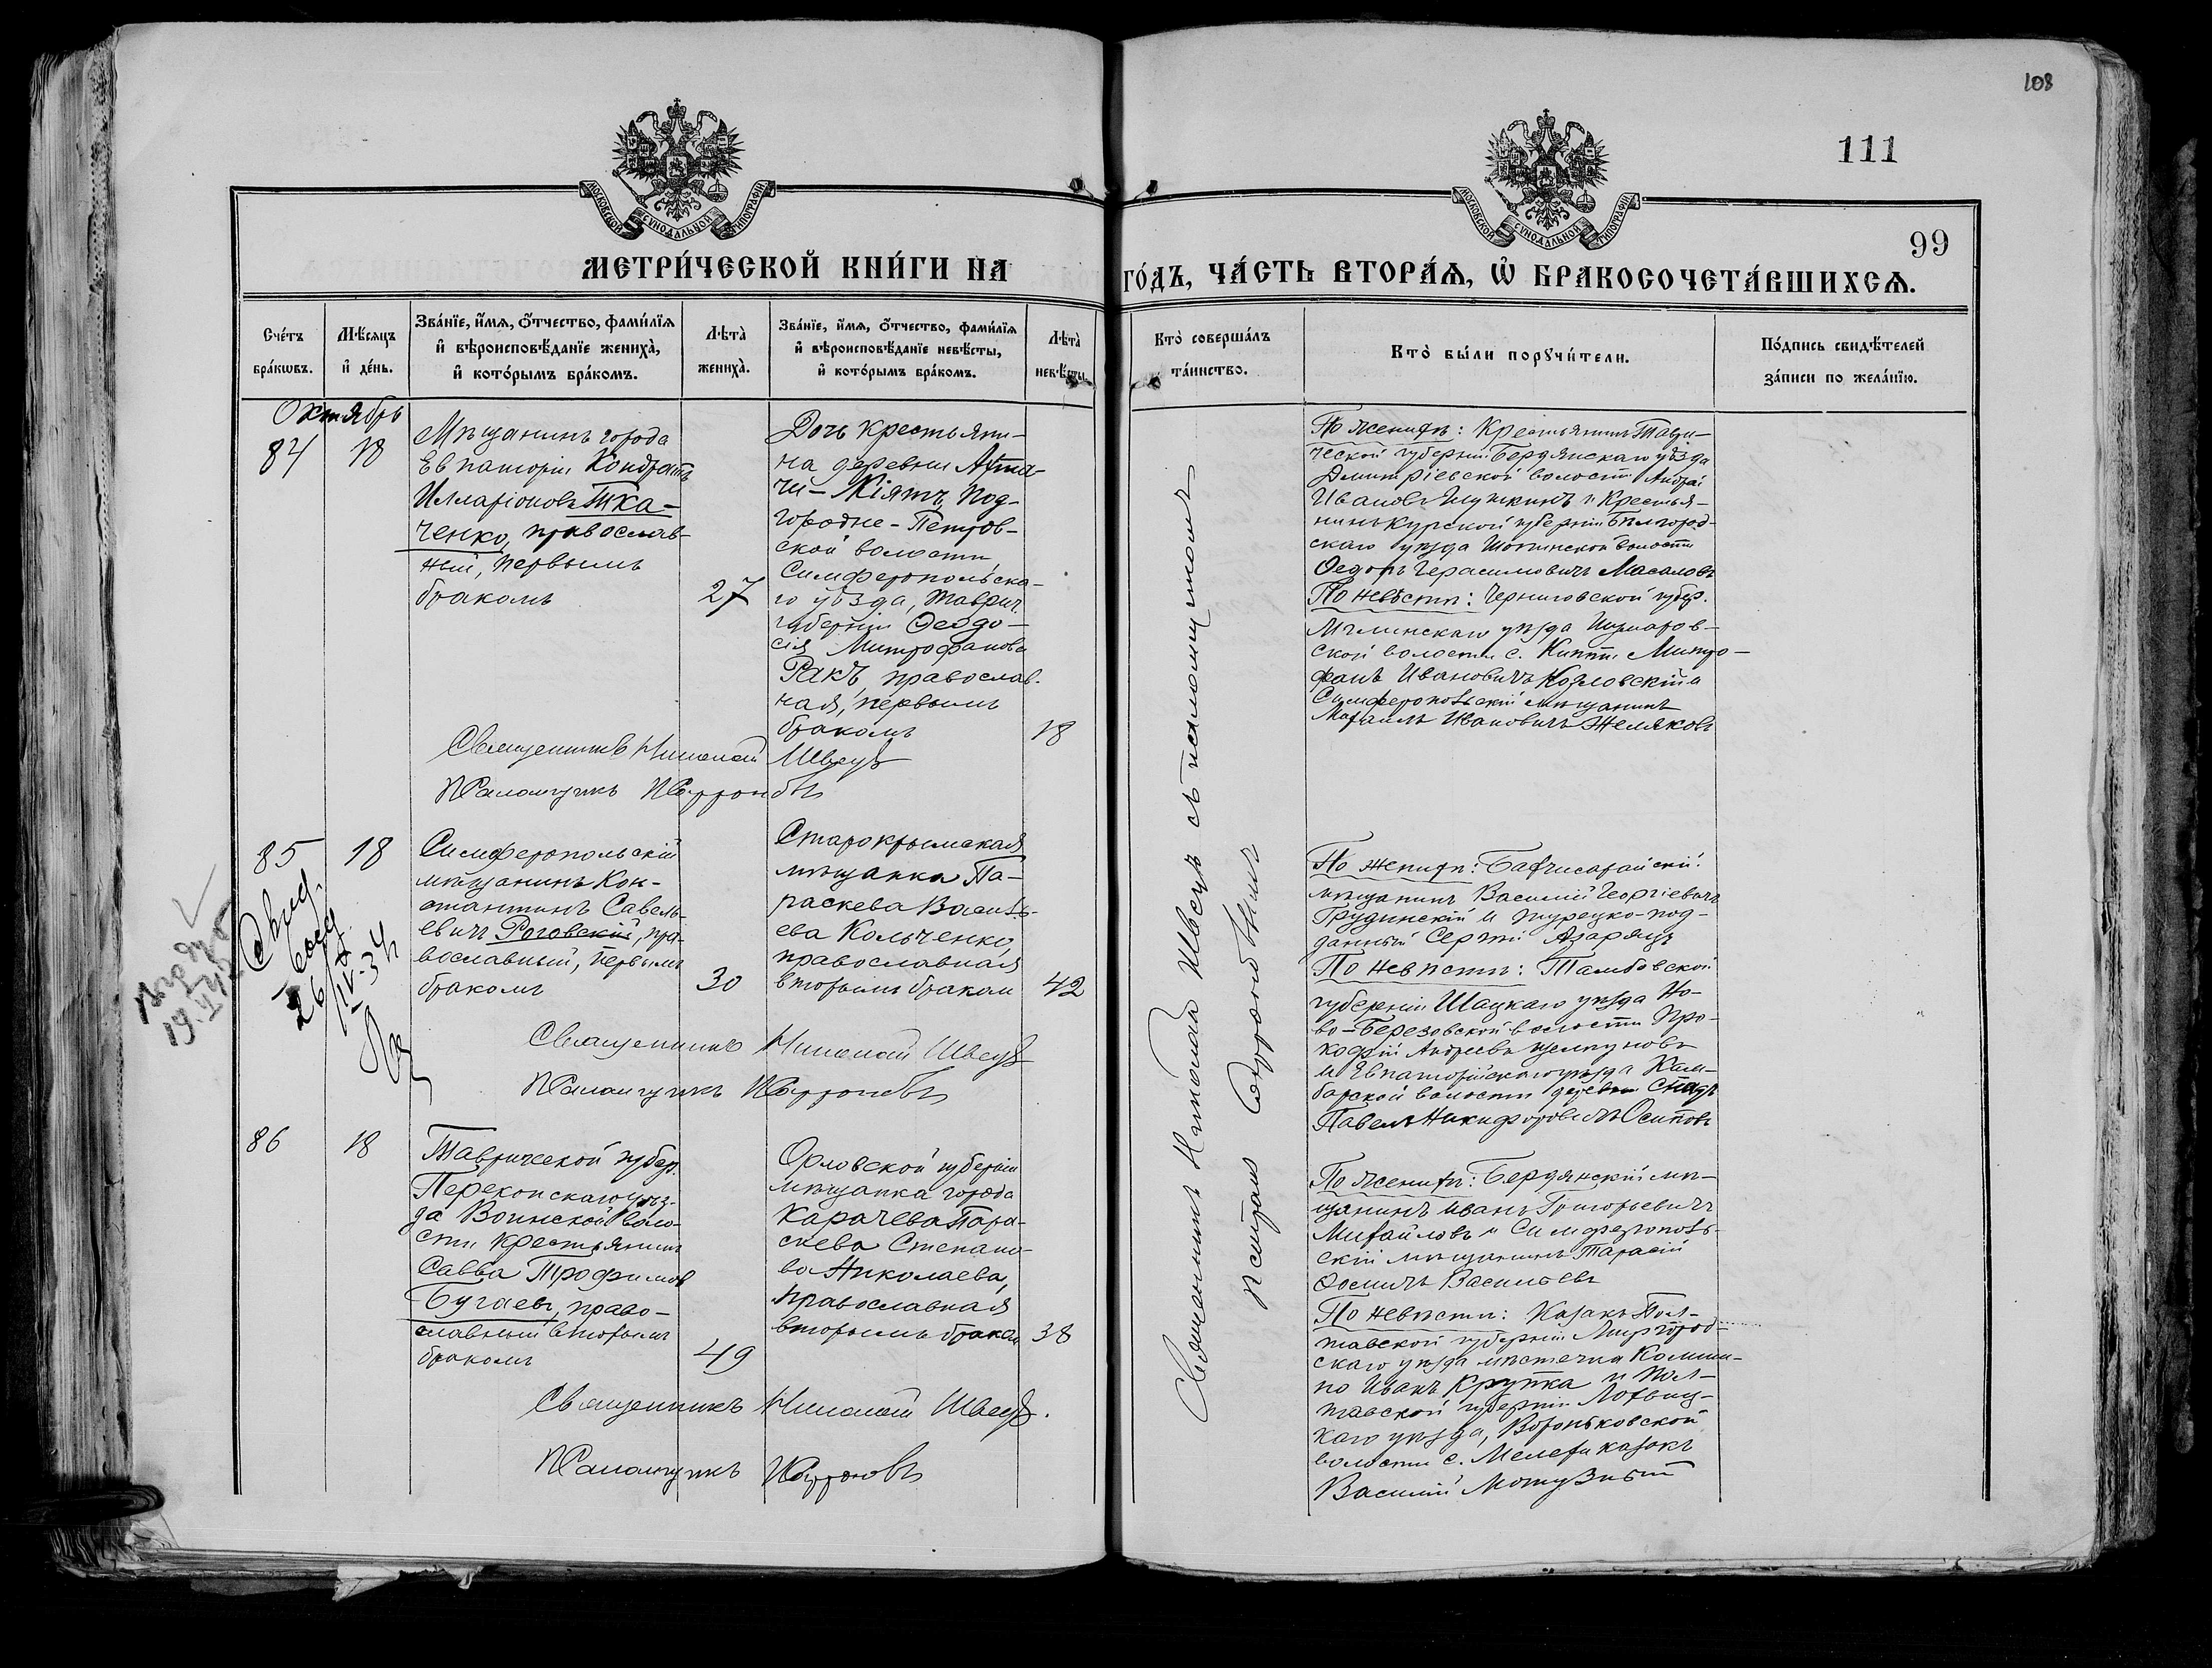 108
111
99
МОСКОВСКОЙ СѴНОДАЛЬНОЙ ТИПОГРАФІИ
МОСКОВСКОЙ СѴНОДАЛЬНОЙ ТИПОГРАФІИ
МЕТРИ́ЧЕСКОЙ КНИ́ГИ НА
ГО́ДЪ, ЧА́СТЬ ВТОРА́Ѧ, Ѡ҆ БРАКОСОЧЕТА́ВШИХСѦ.
Сче́тъ
бра́кѡвъ.
Мѣ́сяцъ
и҆ де́нь.
Зва́нїе, и҆́мѧ, ѻ҆́тчество, фами́лїѧ
и҆ вѣроисповѣ́данїе жениха̀,
и҆ кото́рымъ бра́комъ.
Лѣта̀
жениха̀.
Зва́нїе, и҆́мѧ, ѻ҆́тчество, фами́лїѧ
и҆ вѣроисповѣ́данїе невѣ́сты,
и҆ кото́рымъ бра́комъ.
Лѣта̀
невѣ́сты.
Кто̀ соверша́лъ
та́инство.
Кто̀ бы́ли порꙋчи́тели.
По́дпись свидѣ́телей
за́писи по жела́нїю.
Октябрь
84
18
Мѣщанинъ города
Евпаторіи Кондратъ
Илларіоновъ Тка-
ченко, православ-
ный, первымъ
бракомъ
27
Дочь крестьяни-
на деревни Ахта-
чи-Кіятъ, Под-
городне-Петров-
ской волости
Симферопольска-
го уѣзда, Таврич.
губерніи Ѳеодо-
сія Митрофанова
Ракъ, православ-
ная, первымъ
бракомъ
18
Священникъ Николай Швецъ
Псаломщикъ
По женихѣ: Крестьянинъ Таври-
ческой губерніи Бердянскаго уѣзда
Дмитріевской волости Андрей
Ивановъ и Крестья-
нинъ Курской губерніи Бѣлгород-
скаго уѣзда волости
Ѳедоръ Герасимовичъ Масаловъ
По невѣстѣ: Черниговской губер.
Мглинскаго уѣзда
ской волости с. Митро-
фанъ Ивановичъ Козловскій и
Симферопольскій мѣщанинъ
Михаилъ Ивановичъ Желяковъ
85
18
Симферопольскій
мѣщанинъ Кон-
стантинъ Савель-
евичъ Роговскій, пра-
вославный, первымъ
бракомъ
30
Старокрымская
мѣщанка Па-
раскева Василь-
ева Кольченко,
православная
вторымъ бракомъ
42
Священникъ Николай Швецъ
Псаломщикъ
26/IV-34
По женихѣ: Бахчисарайскій
мѣщанинъ Василій Георгіевичъ
Грудинскій и турецко-под-
данный Сергѣй Азарянцъ
По невѣстѣ: Тамбовской
губерніи Шацкаго уѣзда Но-
во-Березовской волости Про-
кофій Андреевъ
и Евпаторійскаго уѣзда Кам-
барской волости деревни
Павелъ Никифоровичъ Осиповъ
86
18
Таврической губер.
Перекопскаго уѣз-
да Воинской воло-
сти крестьянинъ
Савва Трофимовъ
Бугаевъ, право-
славный вторымъ
бракомъ
49
Орловской губерніи
мѣщанка города
Карачева Пара-
скева Степано-
ва Николаева,
православная
вторымъ бракомъ
38
Священникъ Николай Швецъ.
Псаломщикъ
По женихѣ: Бердянскій мѣ-
щанинъ Иванъ Григорьевичъ
Михайловъ и Симферополь-
скій мѣщанинъ Тарасій
Ѳомичъ Васильевъ
По невѣстѣ: Казакъ Пол-
тавской губерніи Миргород-
скаго уѣзда мѣстечка Комыш-
но Иванъ Крупка и Пол-
тавской губерніи Лохвиц-
каго уѣзда, Вороньковской
волости с. Мелехи казакъ
Василій Мотузный
Священникъ Николай Швецъ съ псаломщикомъ